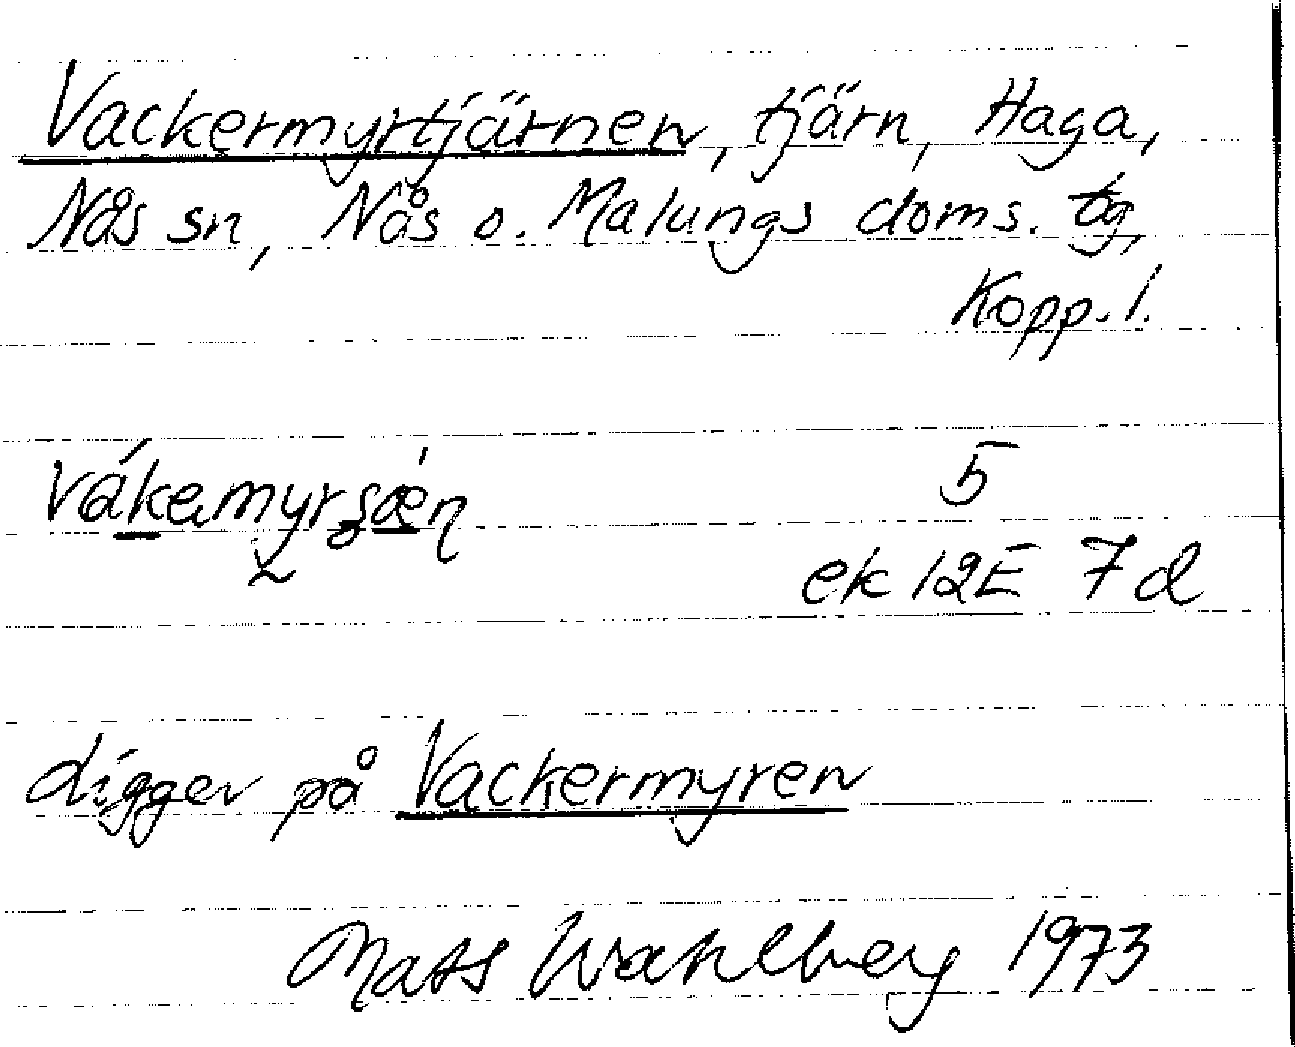 Vackermyrtjärnen, tjärn, Haga,
Nås sn, Nås o. Malungs doms. tg,
Kopp. l.
5
ek 12E 7d
ligger på Vackermyren
Mats Wahlberg 1973